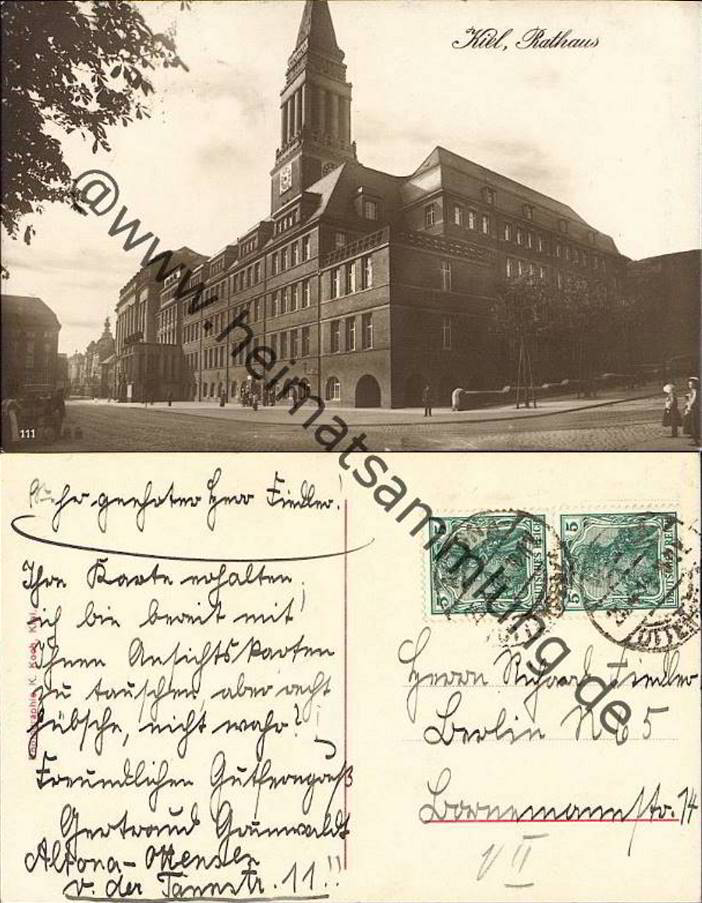 Kiel, Rathaus
@www.heimatsammlung.de
111
Sehr geehrter Herr Fiedler!
Ihre Karte erhalten,
ich bin bereit mit
Ihnen Ansichtskarten
zu tauschen, aber recht
hübsche, nicht wahr?
Freundlichen Gutferngruß
Gertraud Grunwaldt
Altona-Ottensen
v. der Tannstr. 11!!
5 5
DEUTSCHES REICH DEUTSCHES REICH
Herrn Richard Fiedler
Berlin NO 5
Bornemannstr. 14
VII